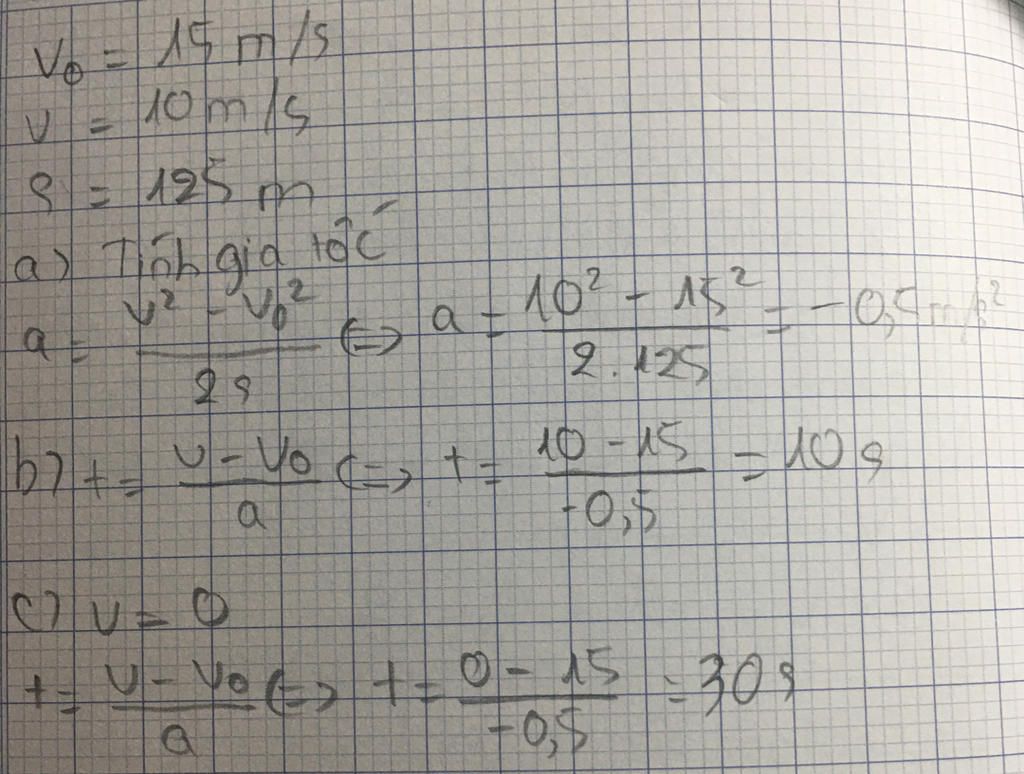 v₀ = 15 m/s
v = 10 m/s
s = 125 m
a) Tính gia tốc
a = (v² - v₀²)/(2s) <=> a = (10² - 15²)/(2.125) = -0,5 m/s²
b) t = (v - v₀)/a <=> t = (10 - 15)/(-0,5) = 10 s
c) v = 0
t = (v - v₀)/a <=> t = (0 - 15)/(-0,5) = 30 s